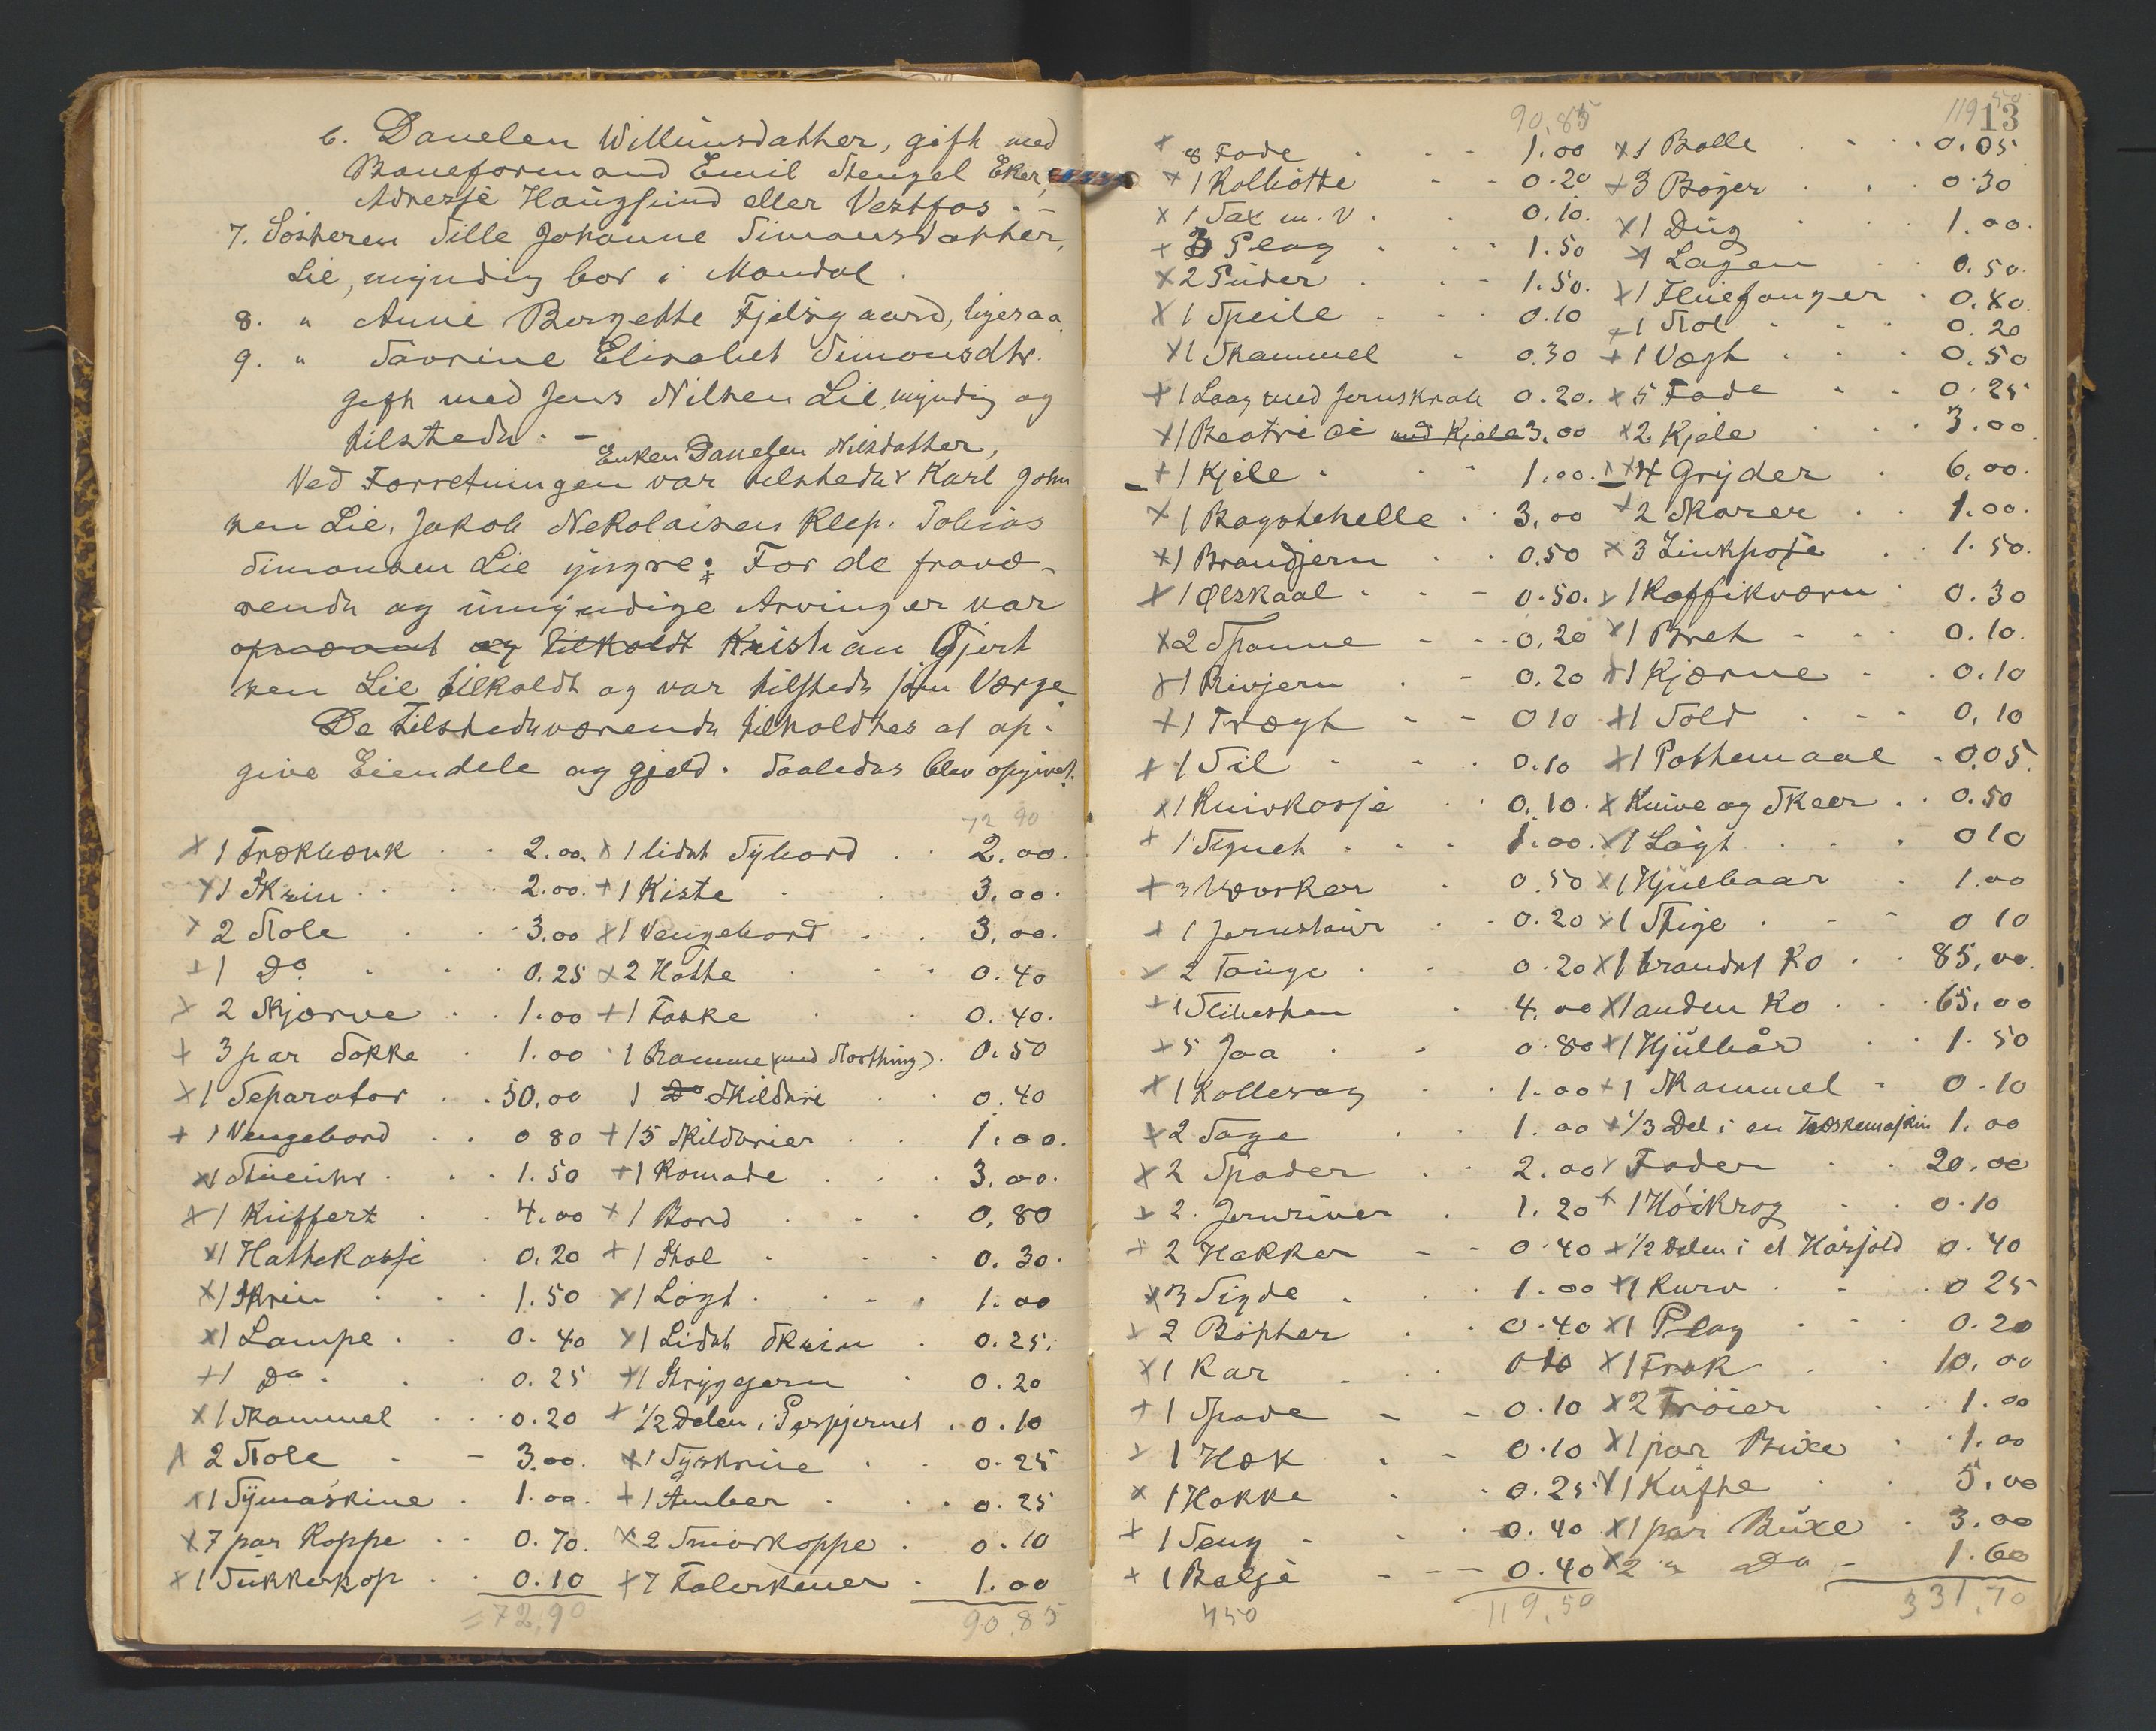 6. Danelen Willumsdatter, gift med
Baneformand Emil Stengel Eker,
Adresse Haugsund eller Vestfos. -
7. Søsteren Sille Johanne Simonsdatter,
Lie, myndig bor i Mandal.
8. " Anne Borgette Fjelsgaard, ligesaa
9. " Tavrine Elisabet Simonsdtr.
gift med Jens Nilsen Lie, myndig og
tilstede. -
Enken Danelen Nilsdatter,
Ved Forretningen var tilstede Karl John
sen Lie, Jakob Nekolaisen Klep. Tobias
Simonsen Lie yngre; For de fravæ-
rende og umyndige Arvinger var
opnævnt og tilkaldt Kristian Gjert
sen Lie tilkaldt og var tilstede som Værge
De tilstedeværende tilholdtes at op-
give Eiendele og gjeld. Saaledes blev opgivet.
72 90
x 1 Trækbænk . . 2.00.
x 1 Skrin . . 2.00.
x 2 Stole . . 3.00
+ 1 Do. . . 0.25
x 2 Skjorve . . 1.00
+ 3 par Sokke . 1.00
x 1 Separator . . 50.00
+ 1 Vengebord . . 0 80
x 1 Stueuhr . . 1.50
x 1 Kuffert . . 4.00
x 1 Hattekasse . 0.20
x 1 Skrin . . 1.50
x 1 Lampe . . 0.40
+ 1 Do . . 0.25
x 1 Skammel . . 0.20
x 2 Stole . - 3.00.
x 1 Symaskine . 1.00.
x 7 par Koppe . . 0.70.
x 1 Sukkerkop . . 0.10
= 72,90
x 1 lidet Sybord . . 2.00.
+ 1 Kiste . . 3.00.
x 1 Vengebord . . 3.00.
x 2 Hatte . . 0.40
+ 1 Taske . . 0.40.
1 Ramme (med Storthing). 0.50
1 Do Skilderi . . 0.40
+ 15 Skilderier . . 1.00.
+ 1 Komode . . 3.00.
x 1 Bord . . 0.80
+ 1 Stol . . 0.30.
x 1 Løgt . . 1.00
x 1 Lidet Skrin . 0.25.
x 1 Strygejern . 0.20
+ 1/2 Delen i Persjernet . 0.10
x 1 Syskrine . . 0.25
+ 1 Amber . . 0.25
x 2 Smørkoppe . 0.10
x 7 Talerkener . 1.00
90.85
90,85
x 8 Fade . . 1.00
x 1 Kolhøtte - - 0.20
x 1 Sax m. v. . 0.10.
+ 3 Plag . . 1.50
x 2 Puder . . 1.50.
x 1 Speile . . 0.10
x 1 Skammel . 0.30
x 1 Laag med Jernskrab 0.20.
x 1 Beotrie ai med Kjele 3.00
+ 1 Kjele . . 1.00.
x 1 Bagstehelle . . 3.00
x 1 Brandjern . . 0.50
x 1 Ølskaal . . 0.50.
x 2 Spanne - - 0.20
x 1 Rivjern . - 0.20
+ 1 Trægt - - 0 10
+ 1 Sil . . 0.10
x 1 Knivkasse . . 0.10.
+ 1 Signet . . 1.00.
+ 3 Vævsker . 0.50
+ 1 Jernstaur . . 0.20
x 2 Tønge . . 0.20
+ 1 Slibesten . 4.00
x 5 Jaa . . 0.80
x 1 Kollesag . . 1.00
x 2 Sage . . 1.00
x 2 Spader . . 2.00
x 2. Jernriver . 1.20
+ 2 Hakker - - 0.40
x 3 Sigde . . 1.00
x 2 Bøtter . . 0.40
x 1 Kar . . 0 10
+ 1 Spade - - 0.10
x 1 Hæk . - 0.10
x 1 Hakke - . 0.25
+ 1 Seng - . 0.40
+ 1 Balje - - 0.40
450
119,50
119 50
13
x 1 Balle . . 0.05
+ 3 Bøger . . 0.30
x 1 Dug . 1.00.
x 1 Lagen . . 0.50.
x 1 Fluefanger . 0.40.
+ 1 Stol . . 0.20
+ 1 Vægt . . 0.50
x 5 Fade . . 0.25
x 2 Kjele . . 3.00
x 4 Gryder . 6.00.
+ 2 Skarer . . 1.00.
x 3 Zinkpose . . 1.50.
x 1 Kaffikværn . 0.30
x 1 Bret - . 0.10.
x 1 Kjærne . . 0.10
x 1 Sold . - 0.10
x 1 Pottemaal . 0.05.
x Knive og Skeer . . 0.50
x 1 Løgt . . 0 10
x 1 Hjulbaar . 1.00
x 1 Stige . - 0 10
x 1 brandet Ko . . 85.00.
x 1 anden Ko . . 65.00
x 1 Hjulbår . . 1.50
+ 1 Skammel - 0.10
+ 1/3 Del i en Træskemaskin 1.00
x Foder . . 20.00
x 1 Høikrog . . 0.10
x 1/2 Delen i et Hårsold 0.40
x 1 Kurv . . 0 25
x 1 Plag . . 0.20
x 1 Frak . . 10.00
x 2 Trøier . . 1.00
x 1 par Buxe . . 1.00
x 1 Kufte . . 5.00
x 1 par Buxe . 3.00
x 2 " Do - 1.60
331,70